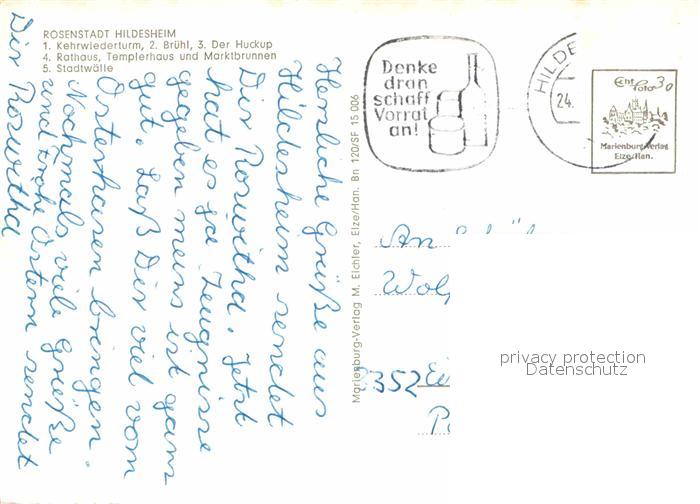 ROSENSTADT HILDESHEIM
1. Kehrwiederturm, 2. Brühl, 3. Der Huckup
4. Rathaus, Templerhaus und Marktbrunnen
5. Stadtwälle
Herzliche Grüße aus
Hildesheim sendet
Dir Roswitha. Jetzt
hat es ja Zeugnisse
gegeben meins ist ganz
gut. Laß Dir viel vom
Osterhasen bringen.
Nochmals viele Grüße
und Frohe Ostern sendet
Dir Roswitha
Marienburg-Verlag M. Eichler, Elze/Han. Bn 120/SF 15 006
Denke
dran
schaff
Vorrat
an!
HILDE
24.
Echt
Foto 30
Marienburg-Verlag
Elze/Han.
An
3352
privacy protection
Datenschutz